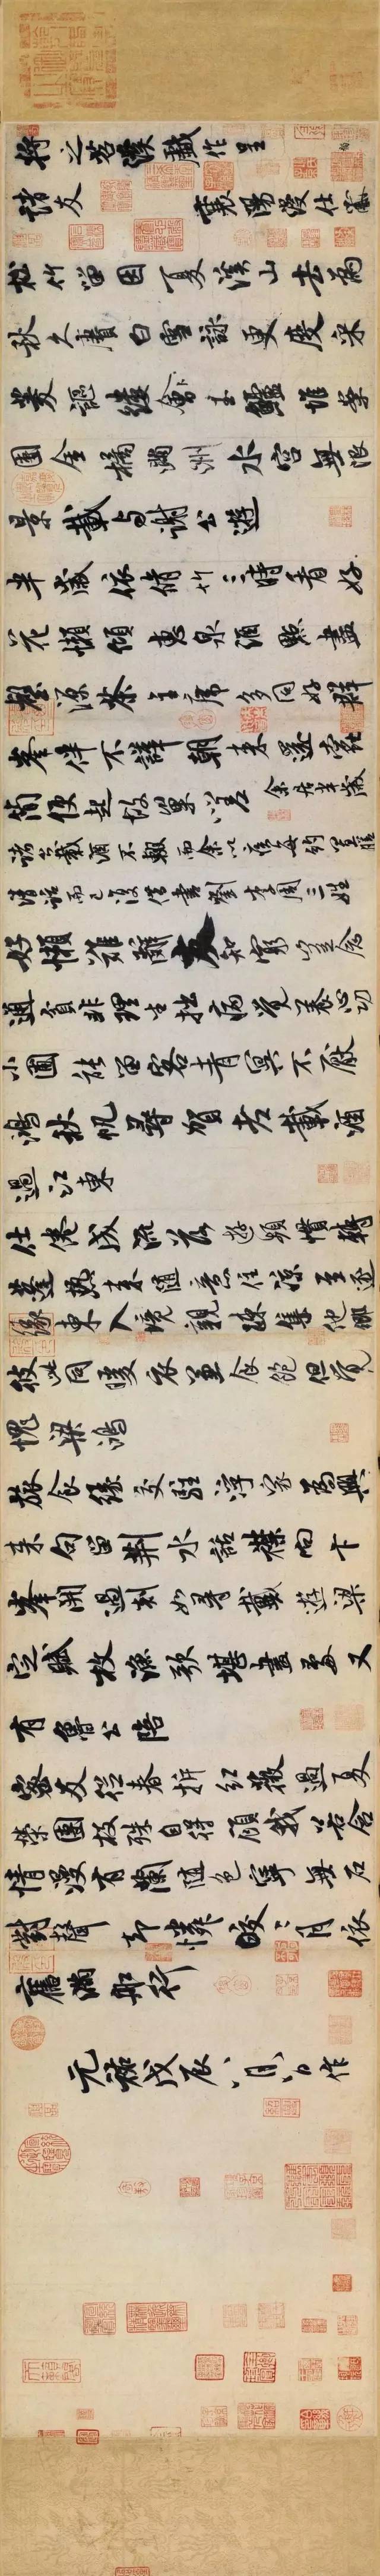 將之苕溪戲作呈
諸友 襄陽漫仕黻
松竹留因夏溪山去為
秋久賡白雪詠更度采
菱謳縷會玉鱸堆案
團金橘滿洲水宮無限
景載與謝公遊
半歲依脩竹三時看好
花懶傾惠泉酒點盡
壑源茶主席多同好群
峯伴不譁朝來還蠹
簡便起故巢嗟 余居半歲
諸公載酒不輟而余以疾每約置膳
清話而已復借書劉李周三姓
好懶難辭友知窮豈念
通貧非理生拙病覺養心功
小圃能留客青冥不厭
鴻秋帆尋賀老載酒
過江東
仕倦成流落遊頻慣轉
蓬熱來隨意住涼至逐
緣東入境親疎集他鄉
彼此同暖衣兼食飽但覺
愧梁鴻
旅食緣交駐浮家為興
來句留荊水話襟向卞
峯開過剡如尋戴遊梁
定賦枚漁歌堪畫處又
有魯公陪
密友從春拆紅薇過夏
榮團枝殊自得顧我若含
情漫有蘭隨色寧無石
對聲却憐皎皎月依
舊滿船行
元祐戊辰八月八日作